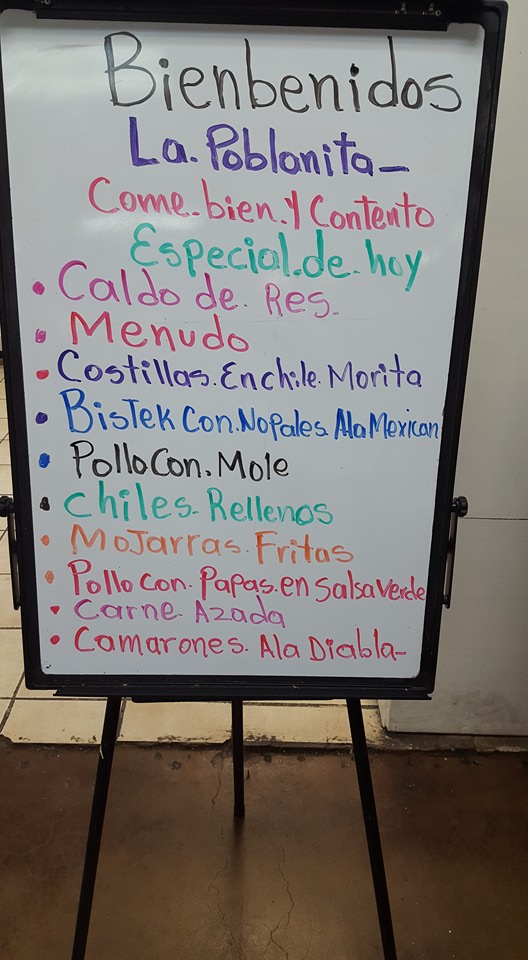 Bienbenidos
La.Poblanita-
Come.bien.y Contento
Especial.de.hoy
• Caldo de. Res.
• Menudo
• Costillas.Enchile.Morita
• BisTek Con.Nopales Ala Mexican
• Pollo Con. Mole
• Chiles-Rellenos
• MoJarras.Fritas
• Pollo Con. Papas.en Salsa Verde
• Carne Azada
• Camarones. Ala Diabla-